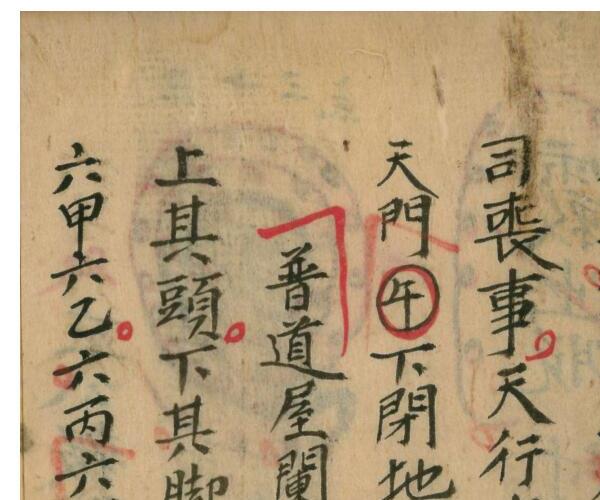 司喪事天行
天門午下閉地
普道屋闌
上其頭下其脚
六甲六乙六丙六